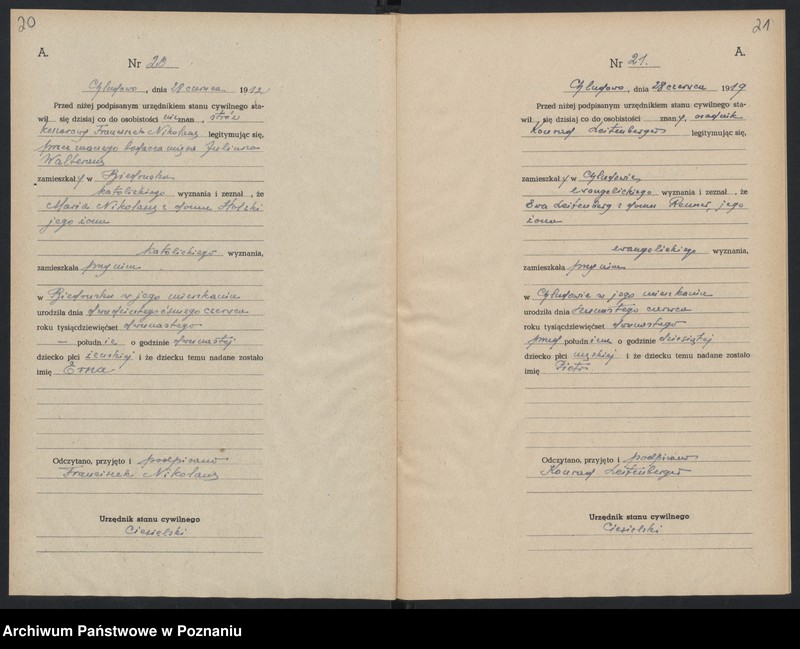 20
A.
Nr 20
Chludowo, dnia 28 czerwca 1912
Przed niżej podpisanym urzędnikiem stanu cywilnego sta-
wił się dzisiaj co do osobistości nieznan, stróż
Franciszek Nikolaus legitymując się,
przez znanego Juliusza
Walterau
zamieszkały w Biedrusku
katolickiego wyznania i zeznał, że
Maria Nikolaus z domu
jego żona
katolickiego wyznania,
zamieszkała przy nim
w Biedrusku w jego mieszkaniu
urodziła dnia dwudziestego ósmego czerwca
roku tysiącdziewięćset dwunastego
— południe o godzinie dwunastej
dziecko płci żeńskiej i że dziecku temu nadane zostało
imię Erna
Odczytano, przyjęto i podpisano
Franciszek Nikolaus
Urzędnik stanu cywilnego
Ciesielski
21
A.
Nr 21.
Chludowo, dnia 28 czerwca 1919
Przed niżej podpisanym urzędnikiem stanu cywilnego sta-
wił się dzisiaj co do osobistości znany, osadnik
Konrad Leitenberger legitymując się,
zamieszkały w Chludowie
ewangelickiego wyznania i zeznał, że
Ewa Leitenberg z domu Renner, jego
żona
ewangelickiego wyznania,
zamieszkała przy nim
w Chludowie w jego mieszkaniu
urodziła dnia czerwca
roku tysiącdziewięćset dwunastego
przed południem o godzinie dziesiątej
dziecko płci męskiej i że dziecku temu nadane zostało
imię Piotr
Odczytano, przyjęto i podpisano
Konrad Leitenberger
Urzędnik stanu cywilnego
Ciesielski
Archiwum Państwowe w Poznaniu